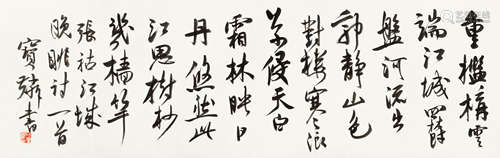 重檻構雲
端江城四鬱
盤河流出
郭靜山色
對樓寒浪
草侵天白
霜林映日
丹悠然此
江思樹杪
幾檣竿
張祜江城
晚眺詩一首
寶書